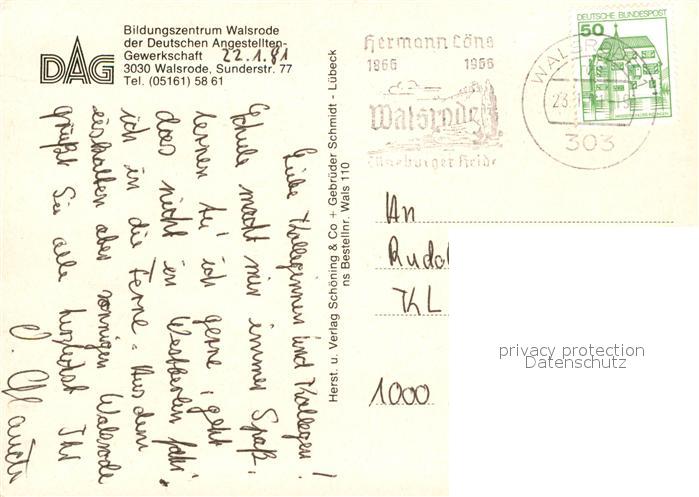 DAG
Bildungszentrum Walsrode
der Deutschen Angestellten-
Gewerkschaft
3030 Walsrode, Sunderstr. 77
Tel. (05161) 58 61
22.1.81
Liebe Kolleginnen und Kollegen!
Schule macht mir immer Spaß,
lernen tu' ich gerne, geht
das nicht in Westberlin fahr'
ich in die Ferne. Aus dem
eiskalten aber sonnigen Walsrode
grüßt Sie alle herzlichst Ihr
Herst. u. Verlag Schöning & Co + Gebrüder Schmidt - Lübeck
ns Bestellnr. Wals 110
Hermann Löns
1866 1966
Walsrode
Lüneburger Heide
WALSR
23.
303
DEUTSCHE BUNDESPOST
50
An
Rudol
KL
1000
privacy protection
Datenschutz